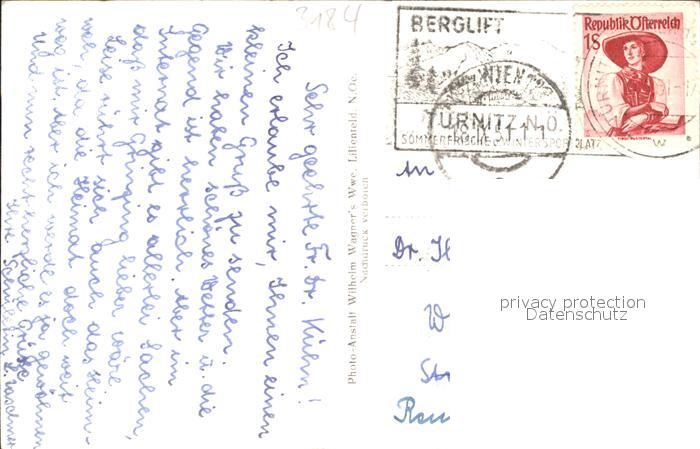 3184
BERGLIFT
WIEN
TÜRNITZ N.Ö.
SOMMERFRISCHE u. WINTERSPORTPLATZ
Republik Österreich
1S
Sehr geehrte Fr. Dr. Kühn!
Ich erlaube mir, Ihnen einen
kleinen Gruß zu senden.
Wir haben schönes Wetter u. die
Gegend ist herrlich. Aber im
Internat gibt es allerlei Sachen,
daß mir Grinzing lieber wäre.
Leise rührt sich auch das Heim-
weh, da die Heimat doch weit
weg ist. Aber ich werde es ja gewöhnen
Und nun recht herzliche Grüße
Ihre Schülerin
Photo-Anstalt Wilhelm Wagner's Wwe. Lilienfeld. N.Oe.
Nachdruck verboten
An
Dr. Il
W
Str
Ren
privacy protection
Datenschutz